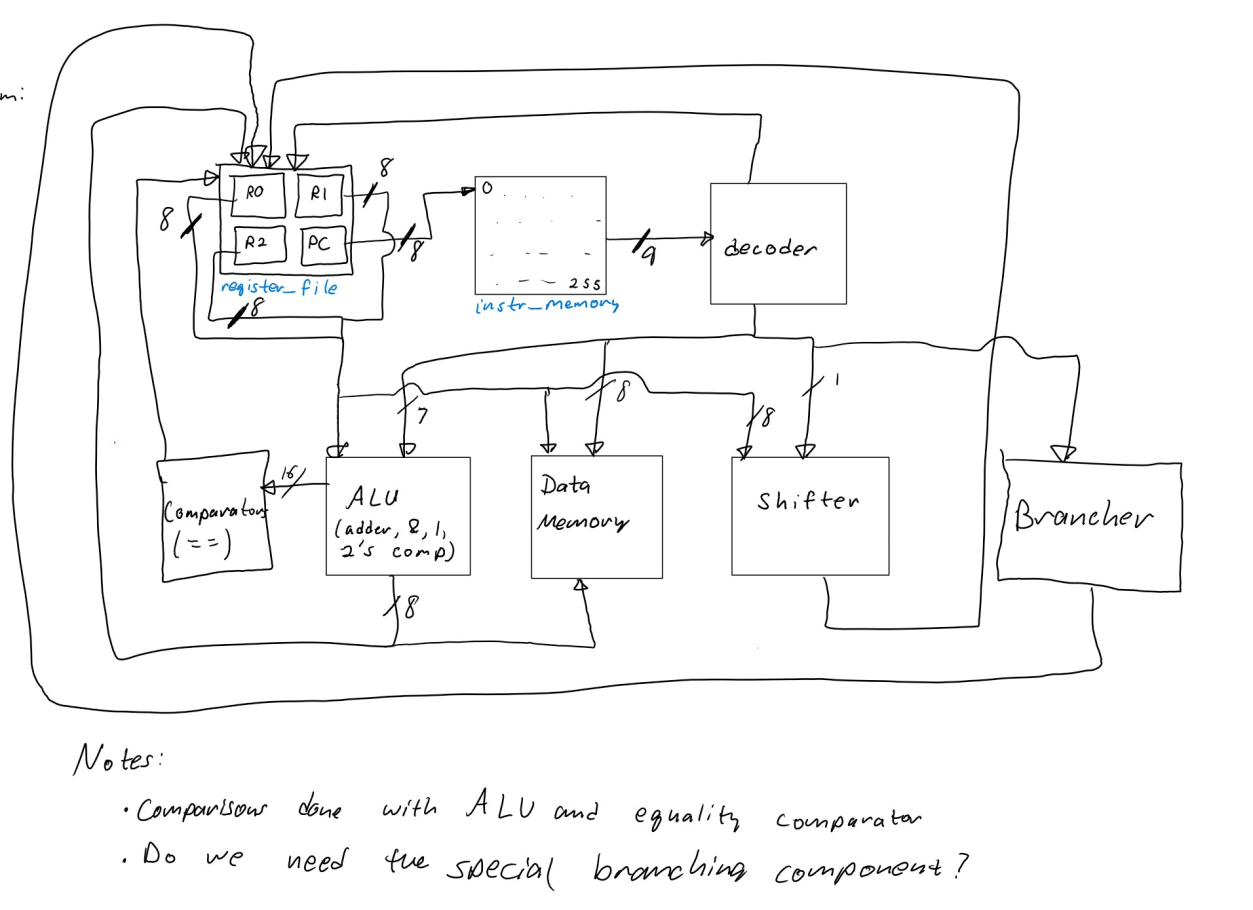 m:
8
R0 R1
8
R2 PC
8
register_file
8
0
255
instr_memory
9
decoder
7
8
8
1
16
Comparator
(==)
ALU
(adder, &, |,
2's comp)
8
Data
Memory
Shifter
Brancher
Notes:
• Comparisons done with ALU and equality comparator
• Do we need the special branching component?